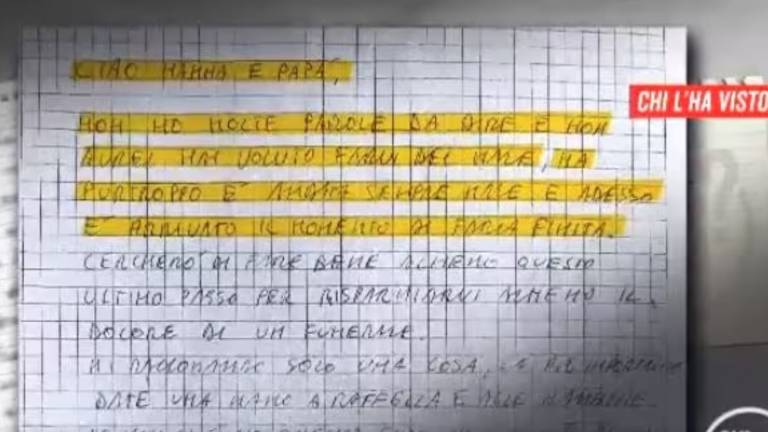 CIAO MAMMA E PAPÀ,
CHI L'HA VISTO
NON HO MOLTE PAROLE DA DIRE E NON
AVREI MAI VOLUTO FARVI DEL MALE, MA
PURTROPPO È ANDATA SEMPRE MALE E ADESSO
E' ARRIVATO IL MOMENTO DI FARLA FINITA.
CERCHERÒ DI FARE BENE ALMENO QUESTO
ULTIMO PASSO PER RISPARMIARVI ALMENO IL
DOLORE DI UN FUNERALE.
VI RACCOMANDO SOLO UNA COSA, LA PIÙ IMPORTANTE
DATE UNA MANO A RAFFAELLA E ALLE BAMBINE.